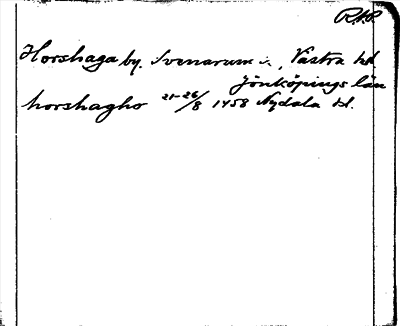 R.A.P.
Horshaga by. Svenarum s., Västra hd
Jönköpings län
horshagho 21-26/8 1458 Nydala kl.